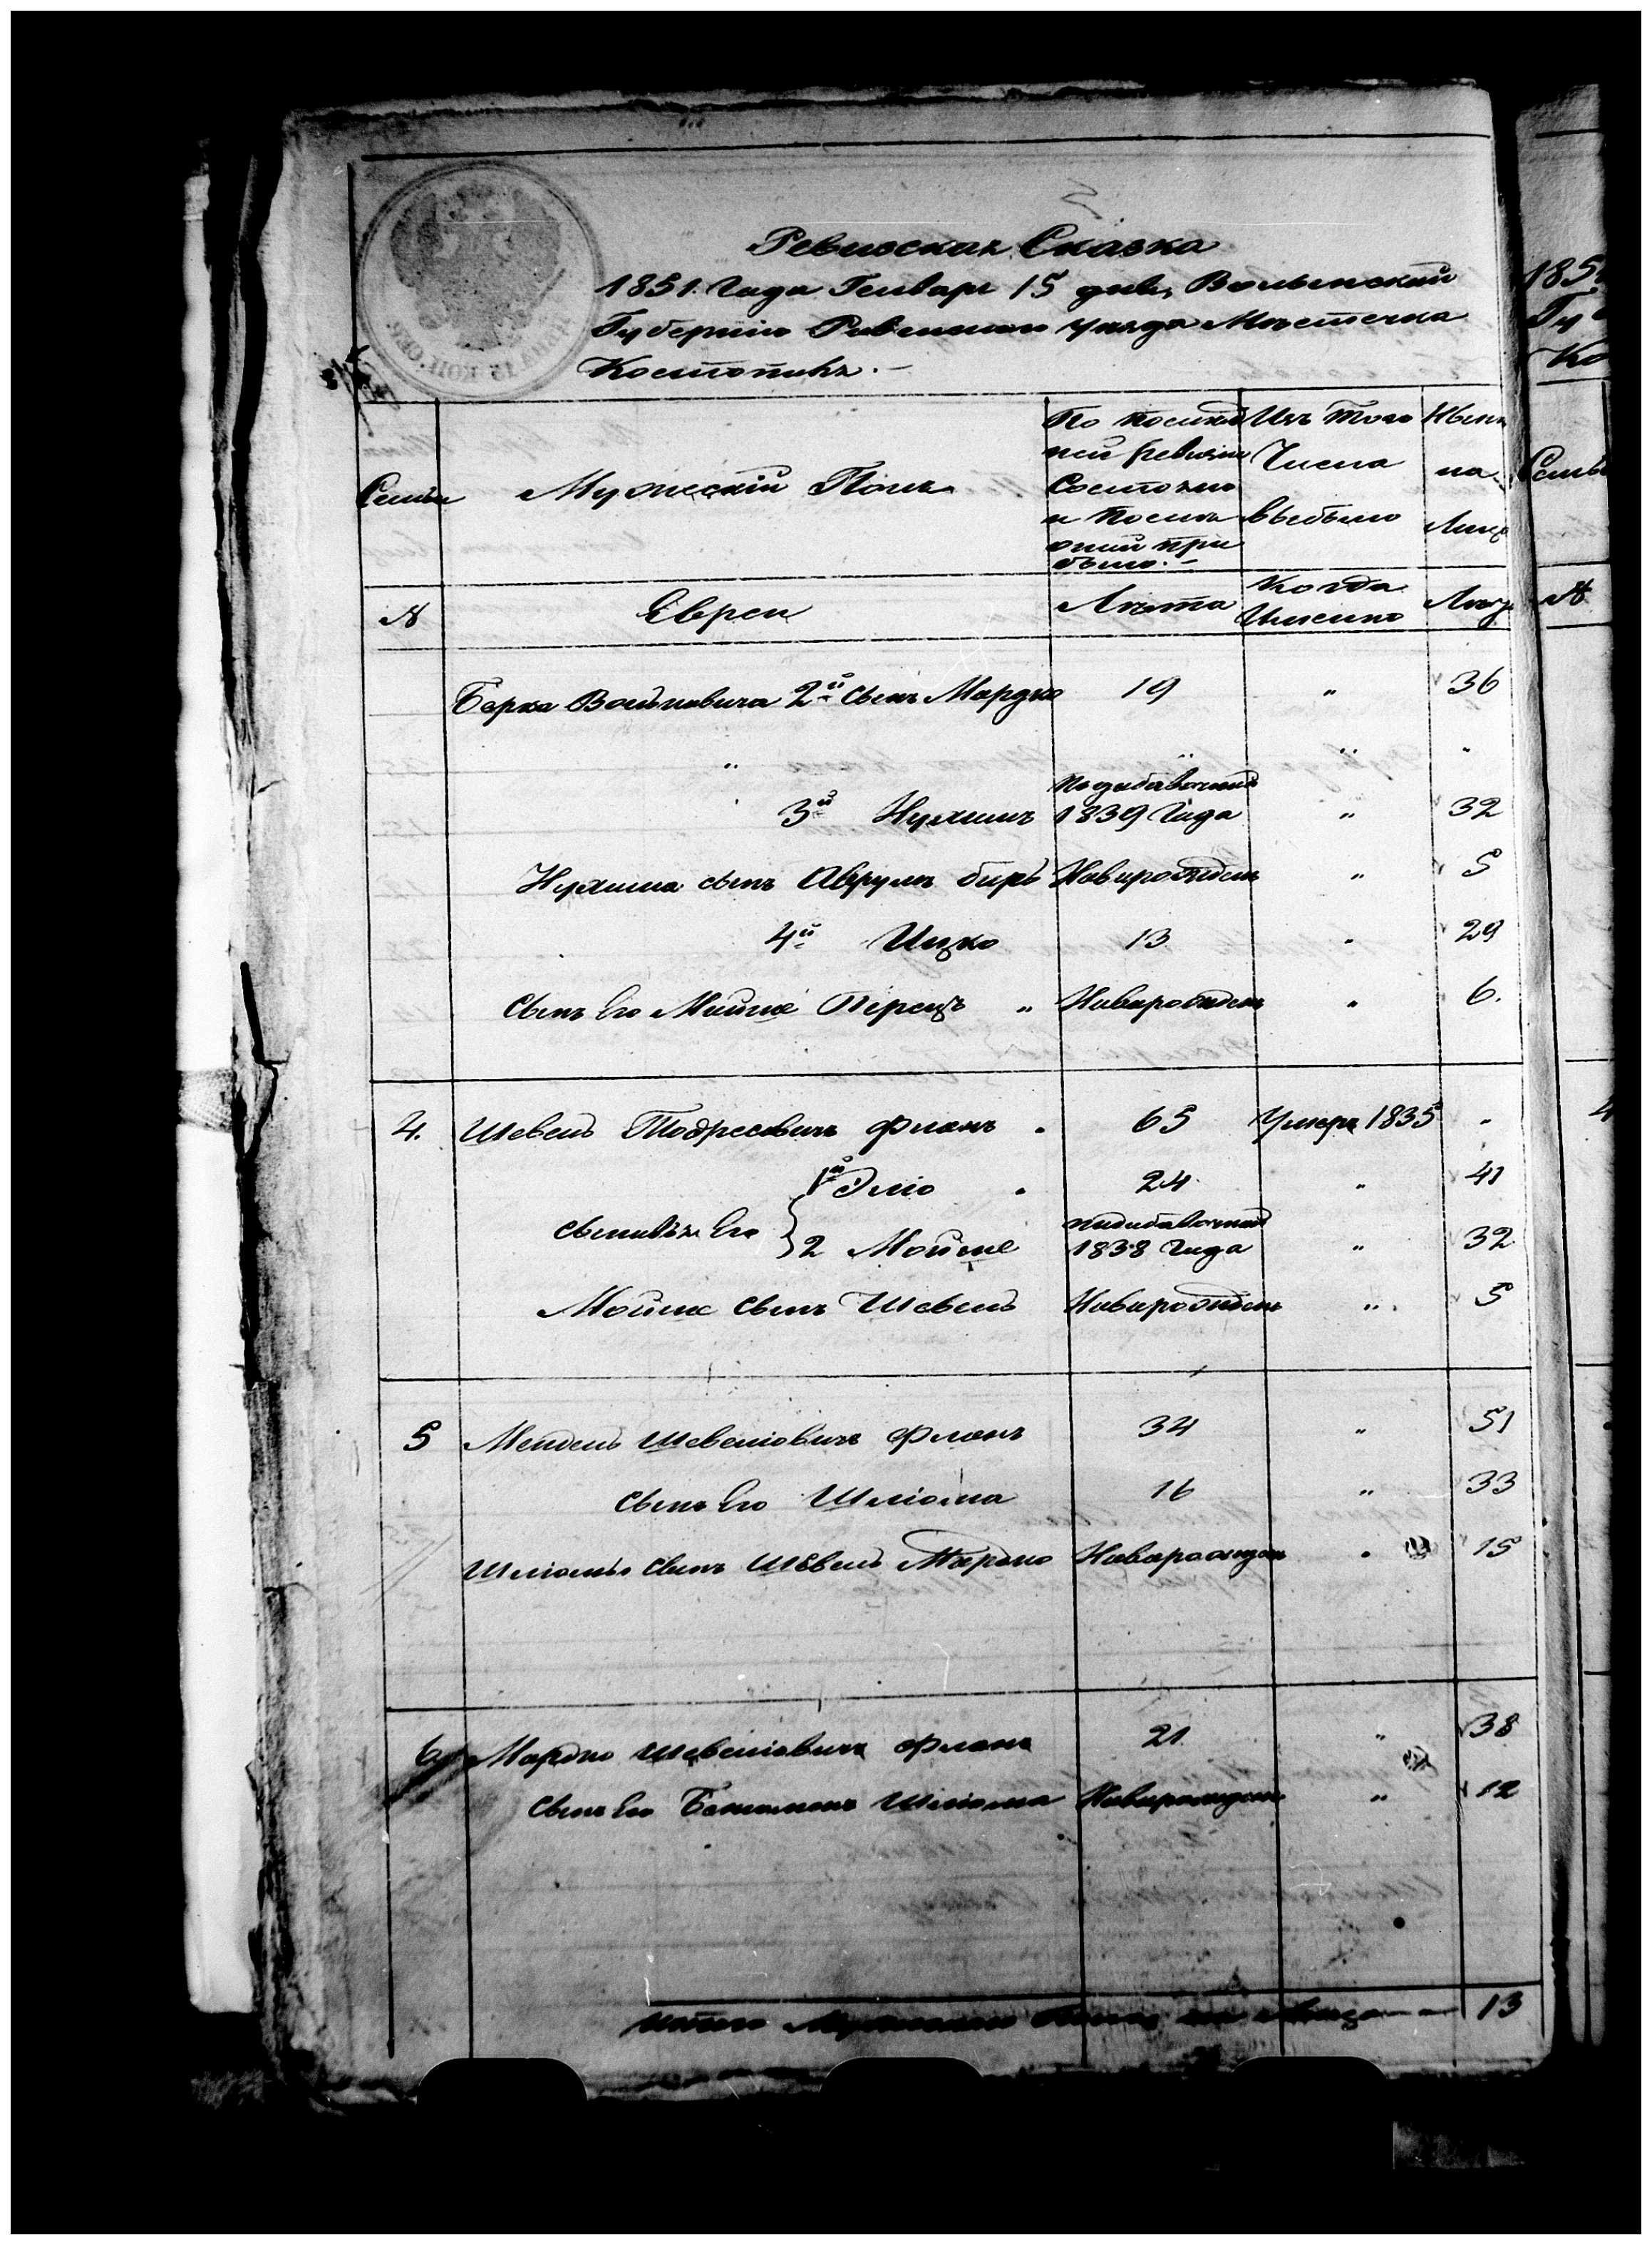 Ревизская Сказка
1851. Года Генваря 15 дня, Волынской
Губернiи Ровенскаго уезда Мѣстечка
Костополя.
Семьи
Мужескiй Полъ
По послѣд
ней ревизiи
Состояло
и послѣ
оной при
было.
Изъ того
Числа
выбыло
Нынѣ
на
Лицо
№
Евреи
Лѣта
Когда
Имянно
Лѣта
Берка Вольковича 2й Сынъ Мардко 19 " 36
" " " "
3й Нухимъ подобавочной 1839 Года " 32
Нухима сынъ Аврумъ Беръ Новорожденъ " 5
4й Ицко 13 " 29
Сынъ Его Мошко Перецъ " Новорожденъ " 6.
4. Шевель Тодресовичъ Флакъ 65 Умеръ 1835 "
1й Элiо 24 " 41
Сыновья Его
2 Мойше подобавочной 1838 Года " 32
Мойше Сынъ Шевель Новорожденъ " 5
5 Мендель Шевелiовичъ Флакъ 34 " 51
Сынъ Его Шлiома 16 " 33
Шлiомы Сынъ Шевель Мардко Новорожденъ " 15
6 Мардко Шевелiовичъ Флакъ 21 " 38
Сынъ Его Бенiоминъ Шлiома Новорожденъ " 12
Итого Мужескаго Пола на лицо 13
185
Гу
Ко
Семьи
№
4